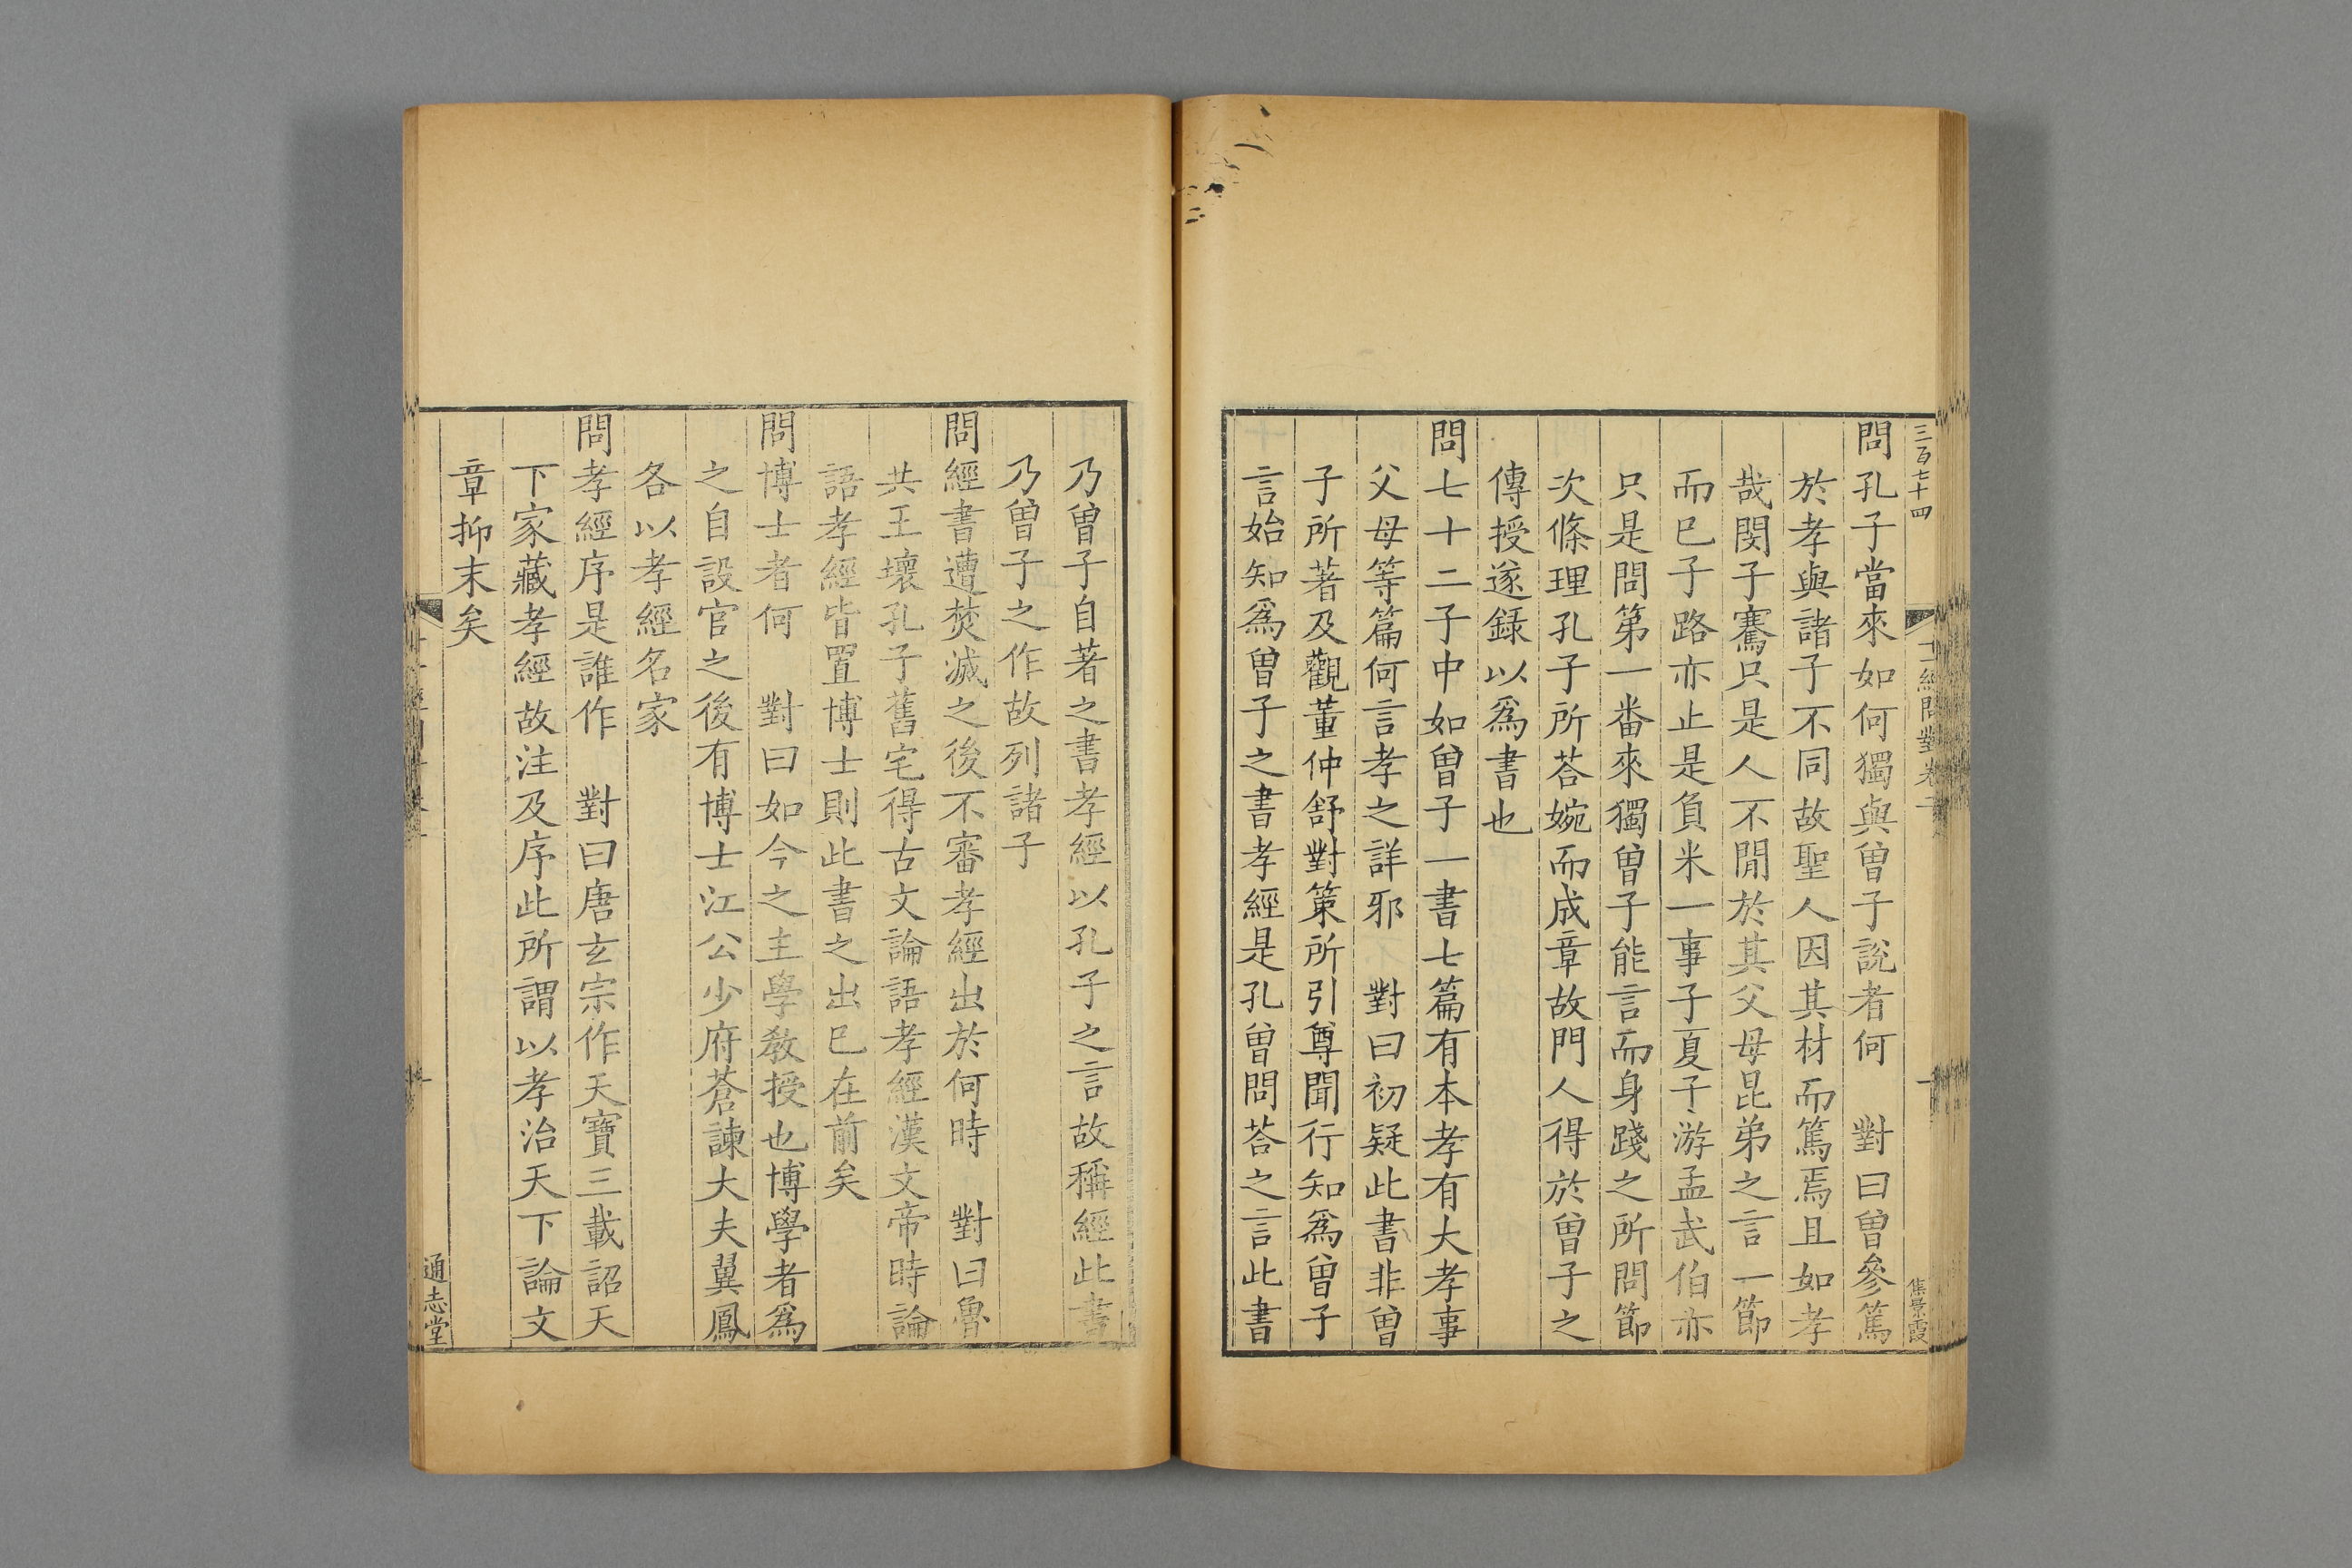 三百七十四
十一經問對卷一
十
集景霞
問孔子當來如何獨與曾子說者何 對曰曾參篤
於孝與諸子不同故聖人因其材而篤焉且如孝
哉閔子騫只是人不閒於其父母昆弟之言一節
而已子路亦止是負米一事子夏子游孟武伯亦
只是問第一番來獨曾子能言而身踐之所問節
次條理孔子所荅婉而成章故門人得於曾子之
傳授遂録以爲書也
問七十二子中如曾子一書七篇有本孝有大孝事
父母等篇何言孝之詳邪 對曰初疑此書非曾
子所著及觀董仲舒對策所引尊聞行知爲曾子
言始知爲曾子之書孝經是孔曾問荅之言此書
乃曾子自著之書孝經以孔子之言故稱經此書
乃曾子之作故列諸子
問經書遭焚滅之後不審孝經出於何時 對曰魯
共王壞孔子舊宅得古文論語孝經漢文帝時論
語孝經皆置博士則此書之出已在前矣
問博士者何 對曰如今之主學教授也博學者爲
之自設官之後有博士江公少府蒼諫大夫翼鳳
各以孝經名家
問孝經序是誰作 對曰唐玄宗作天寶三載詔天
下家藏孝經故注及序此所謂以孝治天下論文
章抑末矣
通志堂